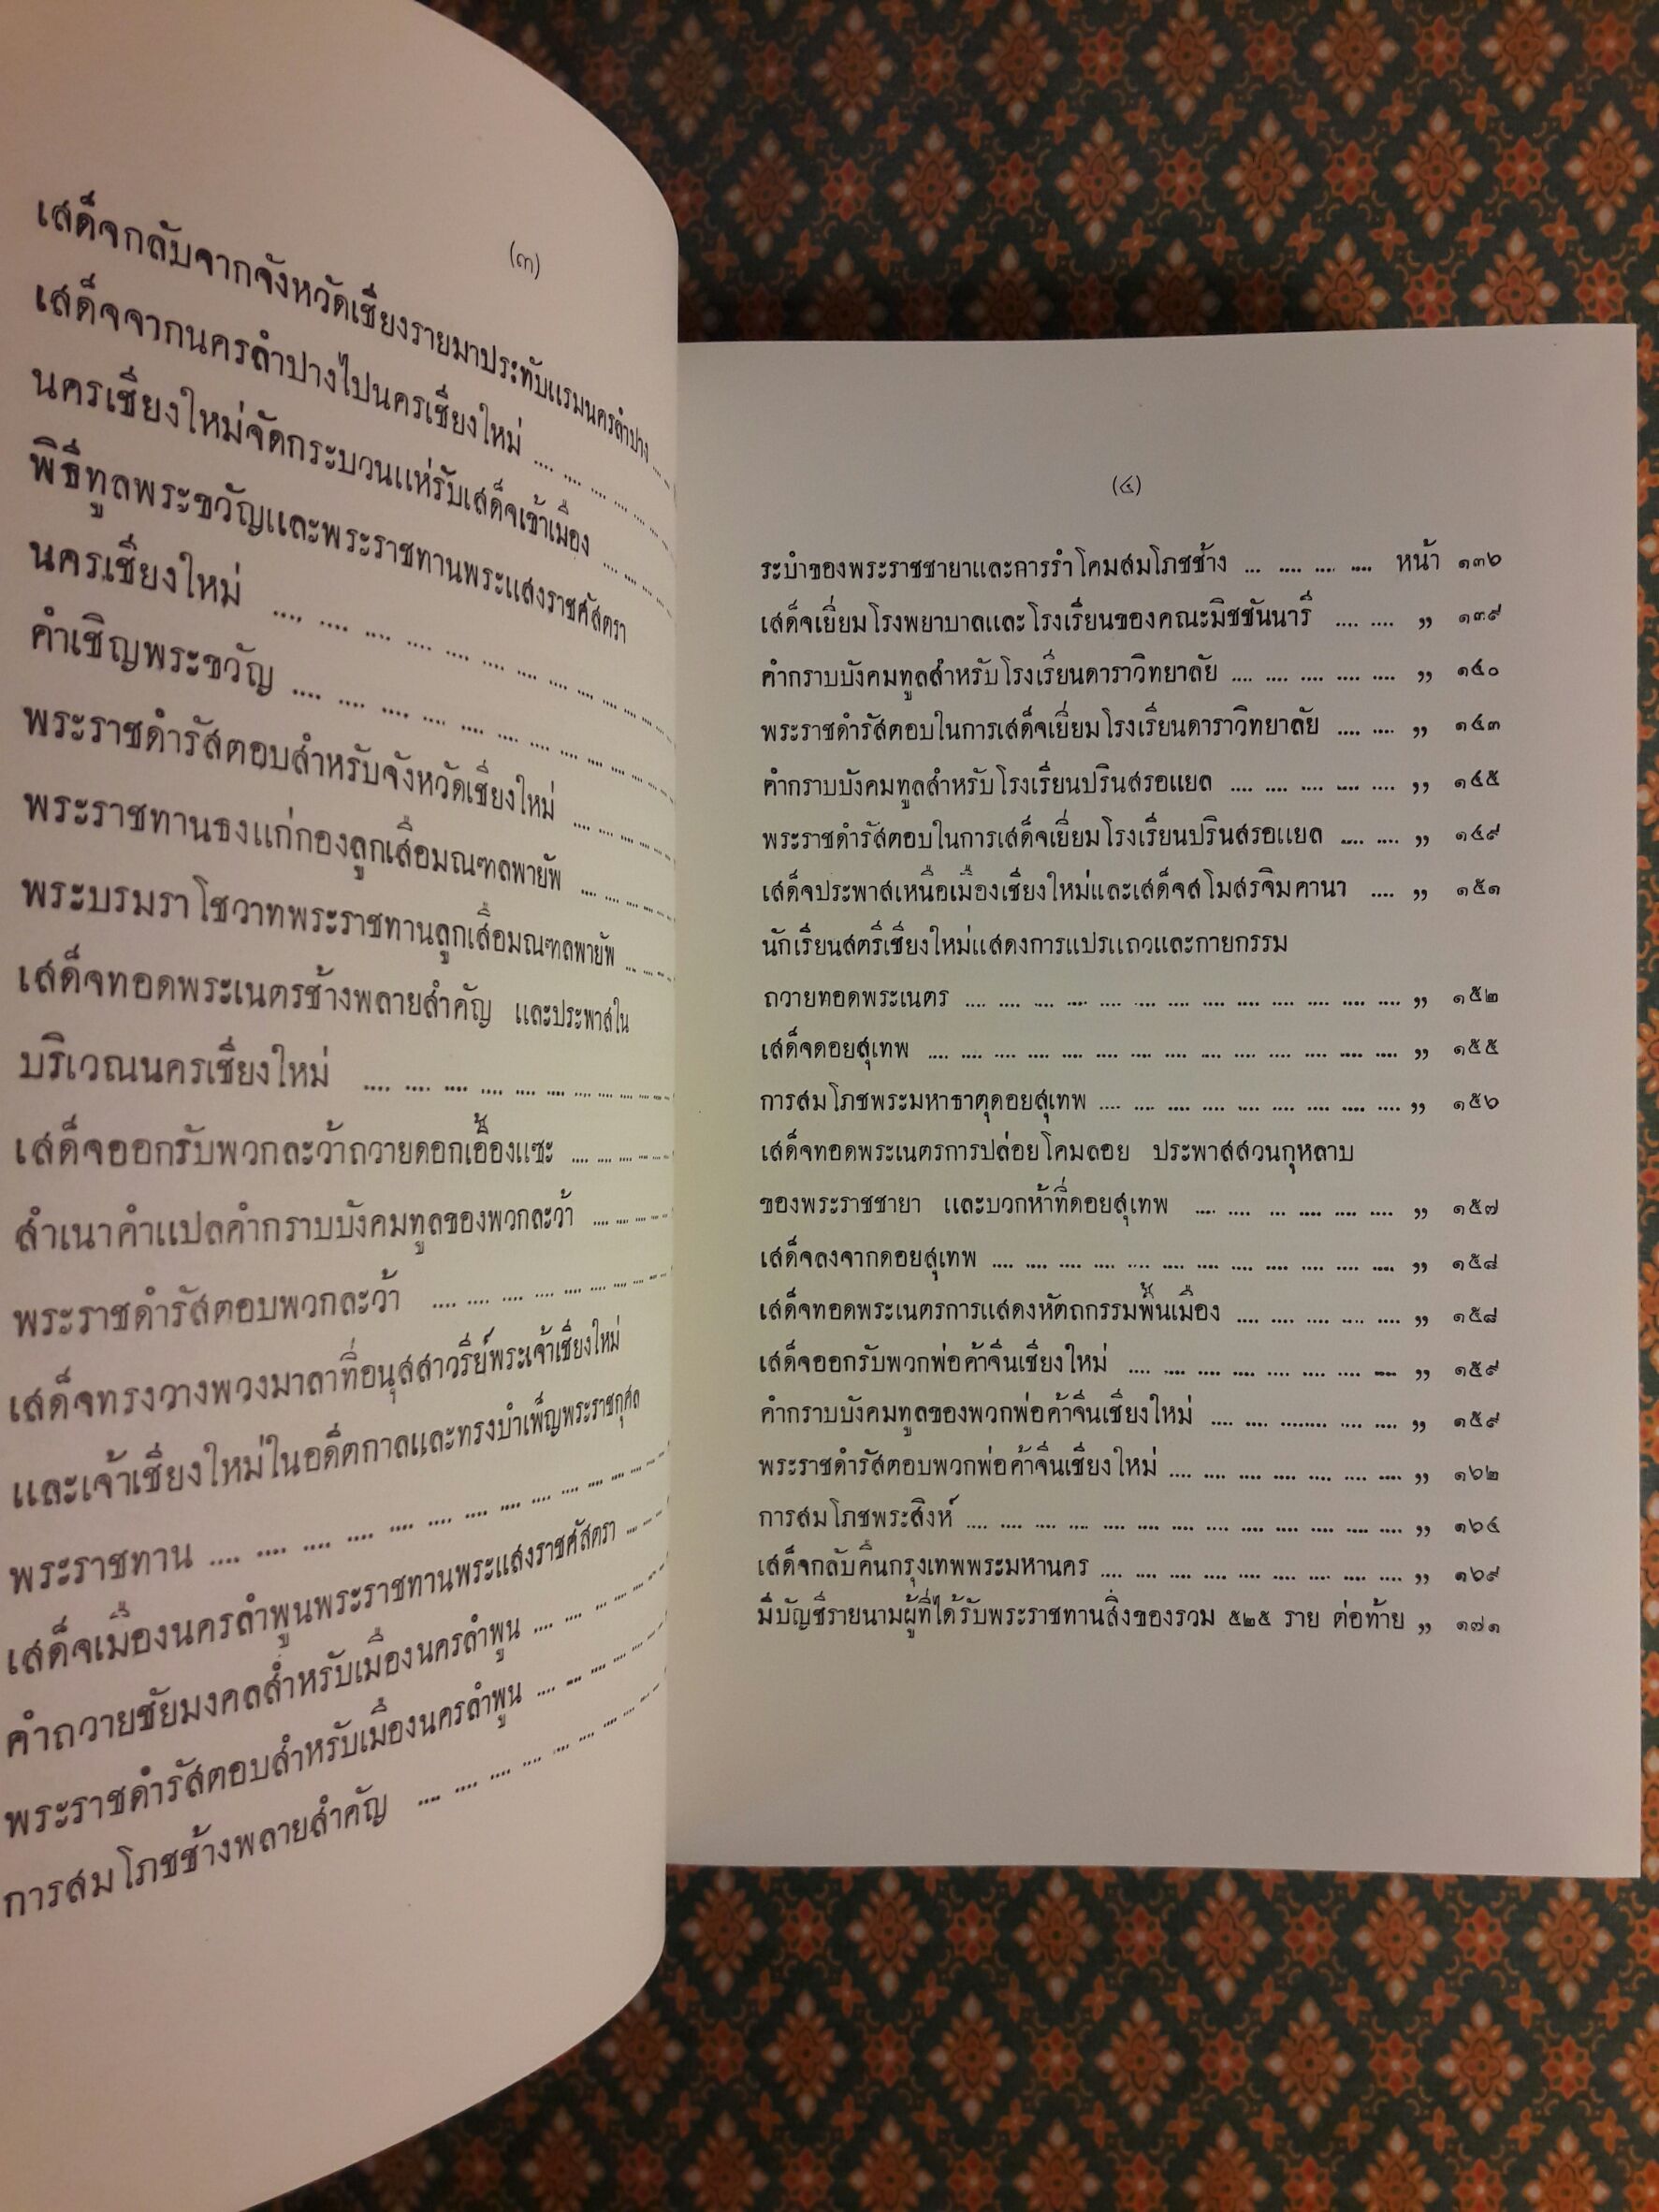 (๓)
เสด็จกลับจากจังหวัดเชียงรายมาประทับแรมนครลำปาง ....
เสด็จจากนครลำปางไปนครเชียงใหม่ .... .... .... .... ....
นครเชียงใหม่จัดกระบวนแห่รับเสด็จเข้าเมือง .... .... ....
พิธีทูลพระขวัญและพระราชทานพระแสงราชศัสตรา
นครเชียงใหม่ .... .... .... .... .... .... .... .... .... .... ....
คำเชิญพระขวัญ .... .... .... .... .... .... .... .... .... .... ....
พระราชดำรัสตอบสำหรับจังหวัดเชียงใหม่ .... .... .... ....
พระราชทานธงแก่กองลูกเสือมณฑลพายัพ .... .... .... ....
พระบรมราโชวาทพระราชทานลูกเสือมณฑลพายัพ .... .... ....
เสด็จทอดพระเนตรช้างพลายสำคัญ และประพาสใน
บริเวณนครเชียงใหม่ .... .... .... .... .... .... .... .... .... ....
เสด็จออกรับพวกละว้าถวายดอกเอื้องแซะ .... .... .... .... ....
สำเนาคำแปลคำกราบบังคมทูลของพวกละว้า .... .... .... ....
พระราชดำรัสตอบพวกละว้า .... .... .... .... .... .... .... ....
เสด็จทรงวางพวงมาลาที่อนุสสาวรีย์พระเจ้าเชียงใหม่
และเจ้าเชียงใหม่ในอดีตกาลและทรงบำเพ็ญพระราชกุศล
พระราชทาน .... .... .... .... .... .... .... .... .... .... .... ....
เสด็จเมืองนครลำพูนพระราชทานพระแสงราชศัสตรา .... .... ....
คำถวายชัยมงคลสำหรับเมืองนครลำพูน .... .... .... .... ....
พระราชดำรัสตอบสำหรับเมืองนครลำพูน .... .... .... .... ....
การสมโภชช้างพลายสำคัญ .... .... .... .... .... .... .... ....
(๔)
ระบำของพระราชชายาและการรำโคมสมโภชช้าง .... .... .... .... หน้า ๑๓๖
เสด็จเยี่ยมโรงพยาบาลและโรงเรียนของคณะมิชชันนารี .... .... ,, ๑๓๙
คำกราบบังคมทูลสำหรับโรงเรียนดาราวิทยาลัย .... .... .... .... .... ,, ๑๔๐
พระราชดำรัสตอบในการเสด็จเยี่ยมโรงเรียนดาราวิทยาลัย .... .... ,, ๑๔๓
คำกราบบังคมทูลสำหรับโรงเรียนปรินสรอแยล .... .... .... .... .... ,, ๑๔๕
พระราชดำรัสตอบในการเสด็จเยี่ยมโรงเรียนปรินสรอแยล .... .... ,, ๑๔๙
เสด็จประพาสเหนือเมืองเชียงใหม่และเสด็จสโมสรจิมคานา .... ,, ๑๕๑
นักเรียนสตรีเชียงใหม่แสดงการแปรแถวและกายกรรม
ถวายทอดพระเนตร .... .... .... .... .... .... .... .... .... .... .... .... .... ,, ๑๕๒
เสด็จดอยสุเทพ .... .... .... .... .... .... .... .... .... .... .... .... .... .... ,, ๑๕๕
การสมโภชพระมหาธาตุดอยสุเทพ .... .... .... .... .... .... .... .... .... ,, ๑๕๖
เสด็จทอดพระเนตรการปล่อยโคมลอย ประพาสสวนกุหลาบ
ของพระราชชายา และบวกห้าที่ดอยสุเทพ .... .... ... .... .... .... ,, ๑๕๗
เสด็จลงจากดอยสุเทพ .... .... .... .... .... .... .... .... .... .... .... .... ,, ๑๕๘
เสด็จทอดพระเนตรการแสดงหัตถกรรมพื้นเมือง .... .... .... .... .... ,, ๑๕๘
เสด็จออกรับพวกพ่อค้าจีนเชียงใหม่ .... .... .... .... .... .... .... .... ,, ๑๕๙
คำกราบบังคมทูลของพวกพ่อค้าจีนเชียงใหม่ .... .... ........ .... .... ,, ๑๕๙
พระราชดำรัสตอบพวกพ่อค้าจีนเชียงใหม่ .... .... .... .... .... .... .... ,, ๑๖๒
การสมโภชพระสิงห์ .... .... .... .... .... .... .... .... .... .... .... .... .... ,, ๑๖๔
เสด็จกลับคืนกรุงเทพพระมหานคร .... .... .... .... .... .... .... .... .... ,, ๑๖๙
มีบัญชีรายนามผู้ที่ได้รับพระราชทานสิ่งของรวม ๕๒๕ ราย ต่อท้าย ,, ๑๗๑